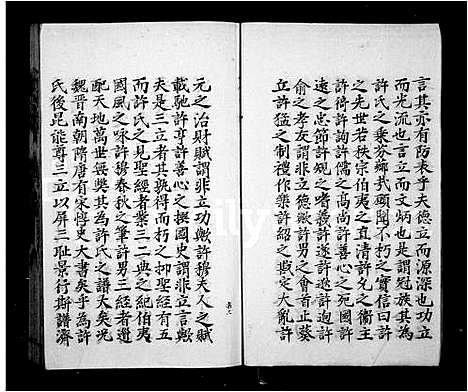 言其亦有防表乎夫德立而源深也功立
而光流也言立而文炳也是謂冠族其為
許氏之乘芬鄉武顧聞不朽之實信曰許
之先世若秩宗伯夷之直清許允之衞主
許荷許詢許儒之高尚許善心之死國許
遠之忠節許規之嗜義許遂許逖許逈許
俞之孝友謂非立德歟許男之會首止葵
丘許猛之制禮作樂許紹之撥定大亂許
元之治財賦謂非立功歟許穆夫人之賦
載馳許亨許善心之撰國史謂非立言歟
夫是三立者其孰得而朽之抑聖經有五
而許氏之見聖經者業三二典之紀伯夷
國風之咏許穆春秋之筆許男三經者遡
配天地萬世無獘其為許氏之譜大矣況
魏晉南朝隋唐有宋惇史大書矣乎為許
氏後昆能尊三立以屏三耻景行斯譜濟